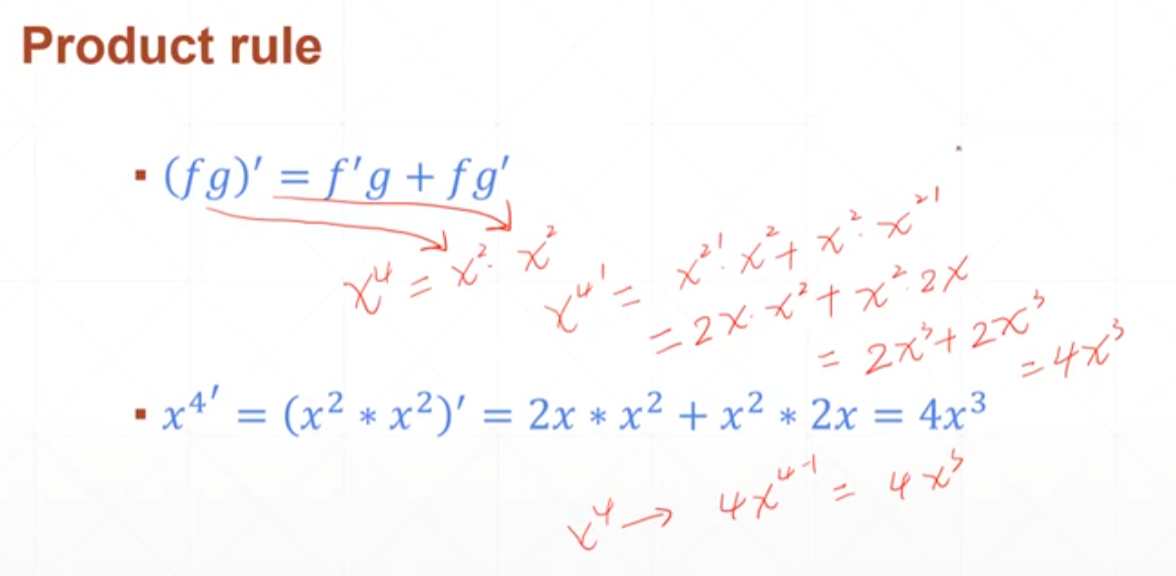 Product rule
▪ (fg)′ = f′g + fg′
x⁴ = x² · x²
x⁴′ = x²′ · x² + x² · x²′
= 2x · x² + x² · 2x
= 2x³ + 2x³
= 4x³
▪ x⁴′ = (x² * x²)′ = 2x * x² + x² * 2x = 4x³
x⁴ → 4x⁴⁻¹ = 4x³